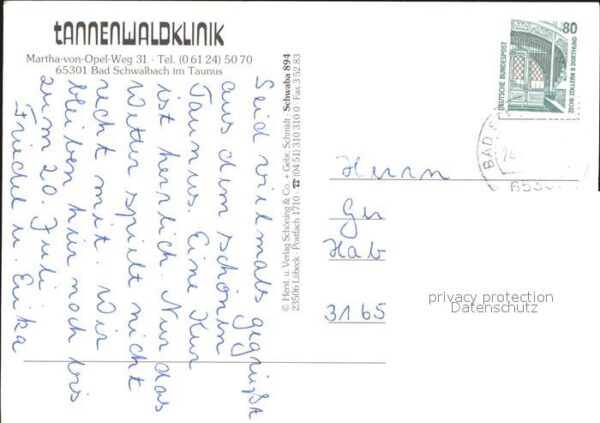 tANNENWALDKLINIK
Martha-von-Opel-Weg 31 · Tel. (0 61 24) 50 70
65301 Bad Schwalbach im Taunus
Seid vielmals gegrüßt
aus dem schönen
Taunus. Eine Kur
ist herrlich. Nur das
Wetter spielt nicht
recht mit. Wir
bleiben hier noch bis
zum 20. Juli
Friedel u. Erika
© Herst. u. Verlag Schöning & Co. + Gebr. Schmidt · Schwaba 894
23506 Lübeck · Postfach 1710 · ☎ (04 51) 310 310 0 · Fax 3 52 83
80
DEUTSCHE BUNDESPOST
ZECHE ZOLLERN II DORTMUND
BAD
Herrn
Ge
Hab
3165
privacy protection
Datenschutz